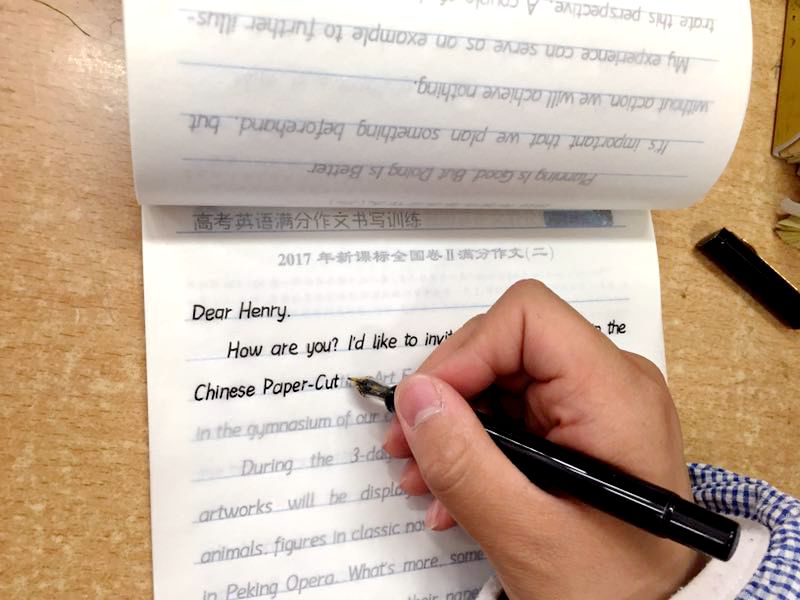 trate this perspective. A couple of
My experience can serve as an example to further illus-
without action we will achieve nothing.
It's important that we plan something beforehand, but
Planning Is Good, But Doing Is Better
高考英语满分作文书写训练
2017 年新课标全国卷Ⅱ满分作文(二)
Dear Henry.
How are you? I'd like to in the
Chinese Paper-Cut Art
in the gymnasium of our
During the 3-day
artworks will be
animals, figures in classic
in Peking Opera. What's more, some
their